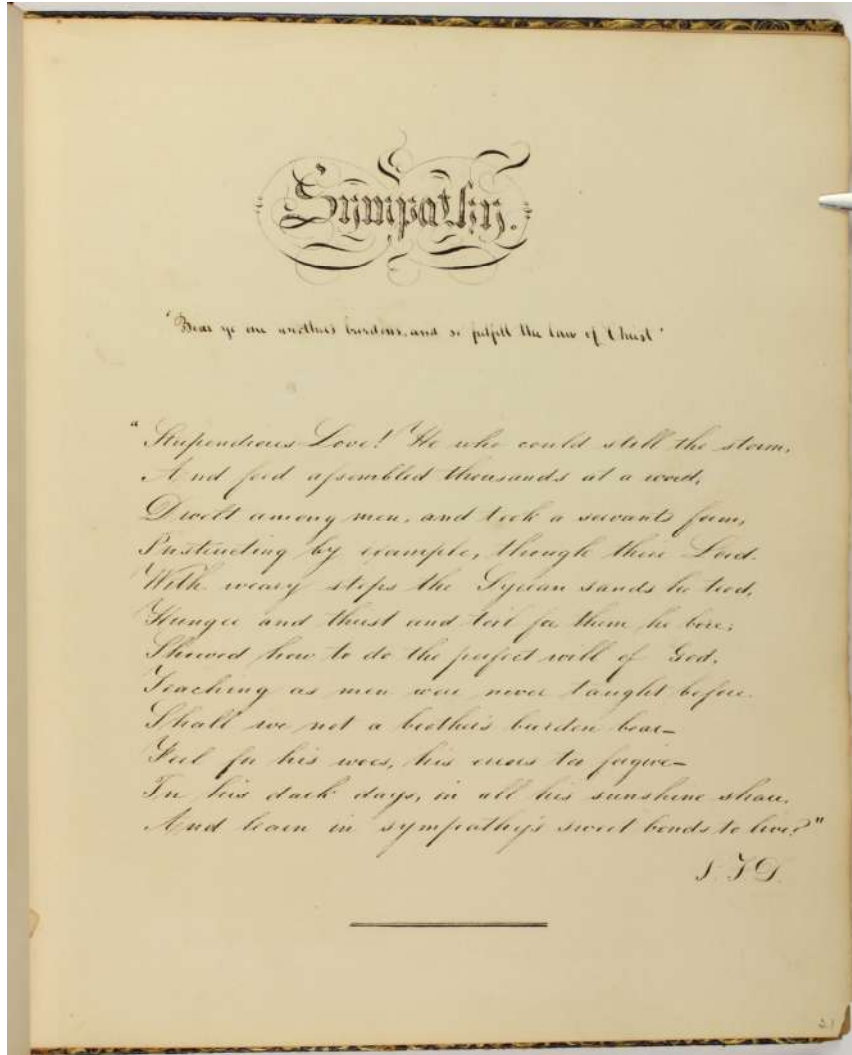 Sympathy.
'Bear ye one another's burdens, and so fulfill the law of Christ'
"Stupendious Love! He who could still the storm,
And feed assembled thousands at a word,
Dwelt among men, and took a servants form,
Instructing by example, though their Lord.
With weary steps the Syrian sands he trod,
Hunger and thirst and toil for them he bore;
Showed how to do the perfect will of God,
Teaching as men were never taught before.
Shall we not a brother's burden bear–
Feel for his woes, his errors to forgive–
In his dark days, in all his sunshine share,
And learn in sympathy's sweet bonds to live?"
21